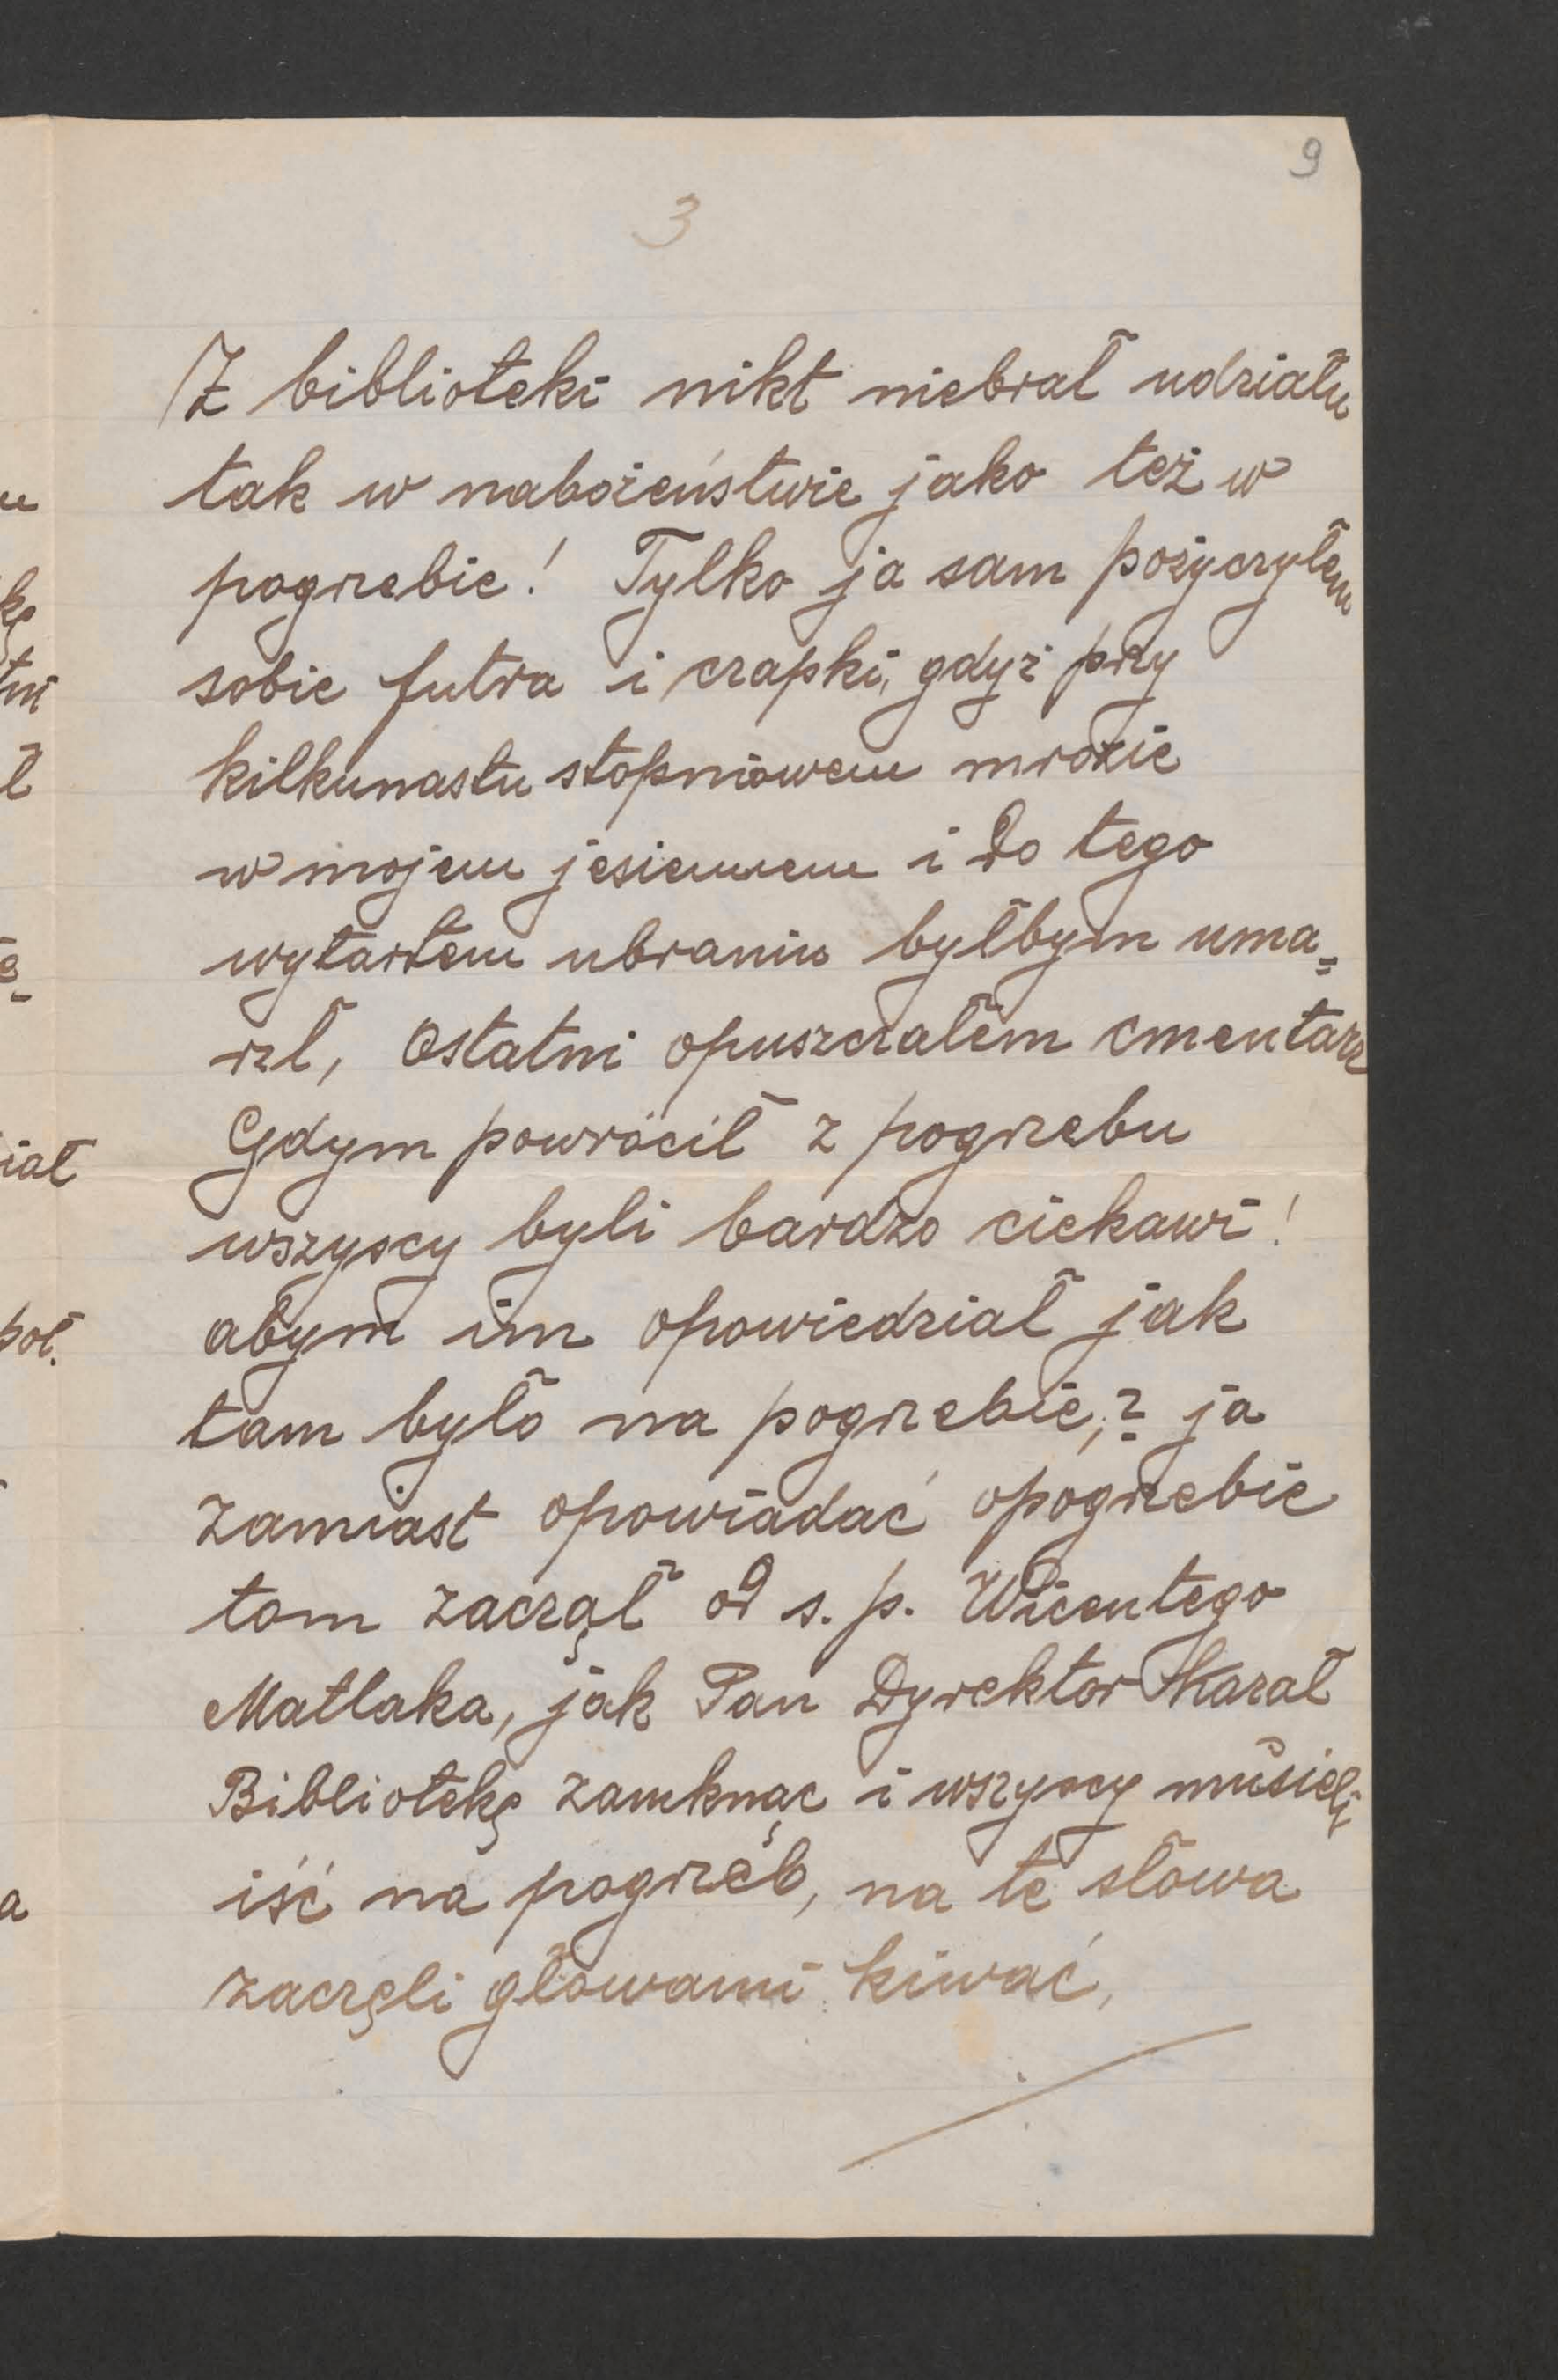 9
3
Z biblioteki nikt niebrał udziału
tak w nabożeństwie jako też w
pogrzebie! Tylko ja sam pożyczyłem
sobie futra i czapki, gdyż przy
kilkunastu stopniowem mrozie
w mojem jesiennem i do tego
wytartem ubraniu byłbym uma=
rzł, Ostatni opuszczałem cmentarz
Gdym powrócił z pogrzebu
wszyscy byli bardzo ciekawi!
abym im opowiedział jak
tam było na pogrzebie,? ja
zamiast opowiadać opogrzebie
tom zaczął od s. p. Wicentego
Matlaka, jak Pan Dyrektor Kazał
Bibliotekę zamknąc i wszyscy musieli
iść na pogrzéb, na te słowa
zaczęli głowami kiwać,